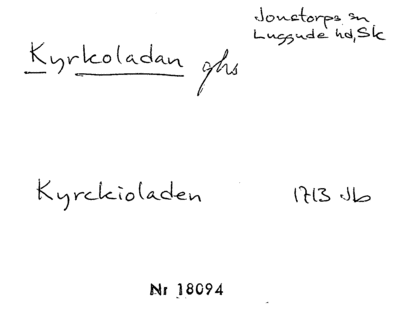 Jonstorps sn
Luggude hd, Sk
Kyrkoladan ghs
Kyrckioladen 1713 Jb
Nr 18094